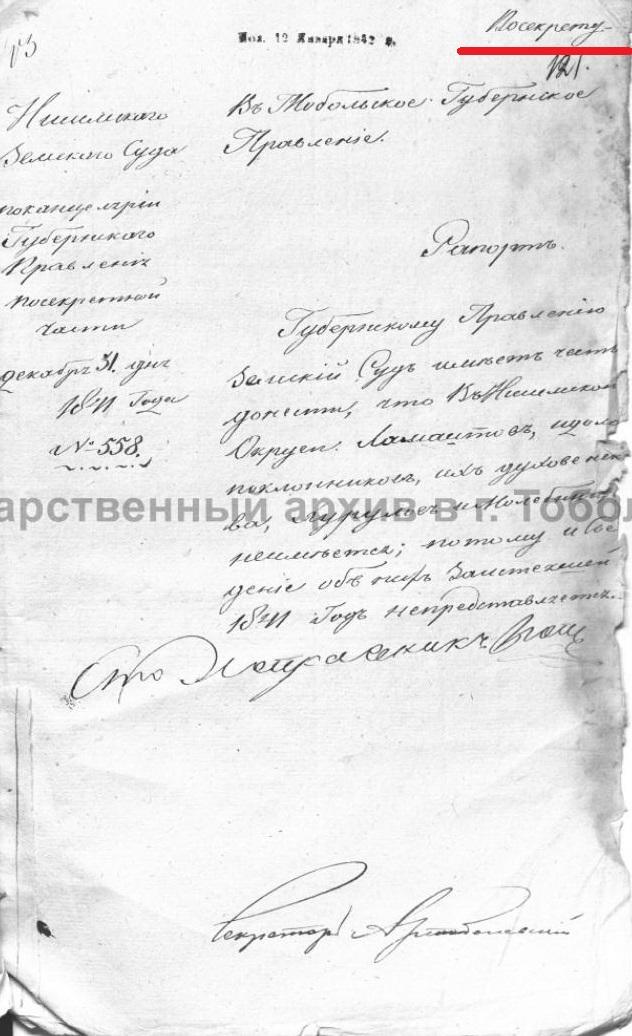 Посекрету
Пол. 12 Января 1842 г.
73
121.
Ишимского
Земского Суда
поканцелярiи
Губернского
Правленiя
посекретной
части
декабря 31. дня
1841 Года
№ 558.
Въ Тобольское Губернское
Правленiе.
Рапортъ.
Губернскому Правленiю
Земскiй Судъ имѣетъ честь
донести, что ВъИшимском
Округи Ламаитовъ, идоло
поклонниковъ, ихъ духовенст
ва, Хурулосъ и Молебищ
неимѣется; потому и Све
денiе объ нихъ Заистекшей
1841 Годъ непредставляется.
Исправникъ
Секретарь
арственный архив в г. Тобол